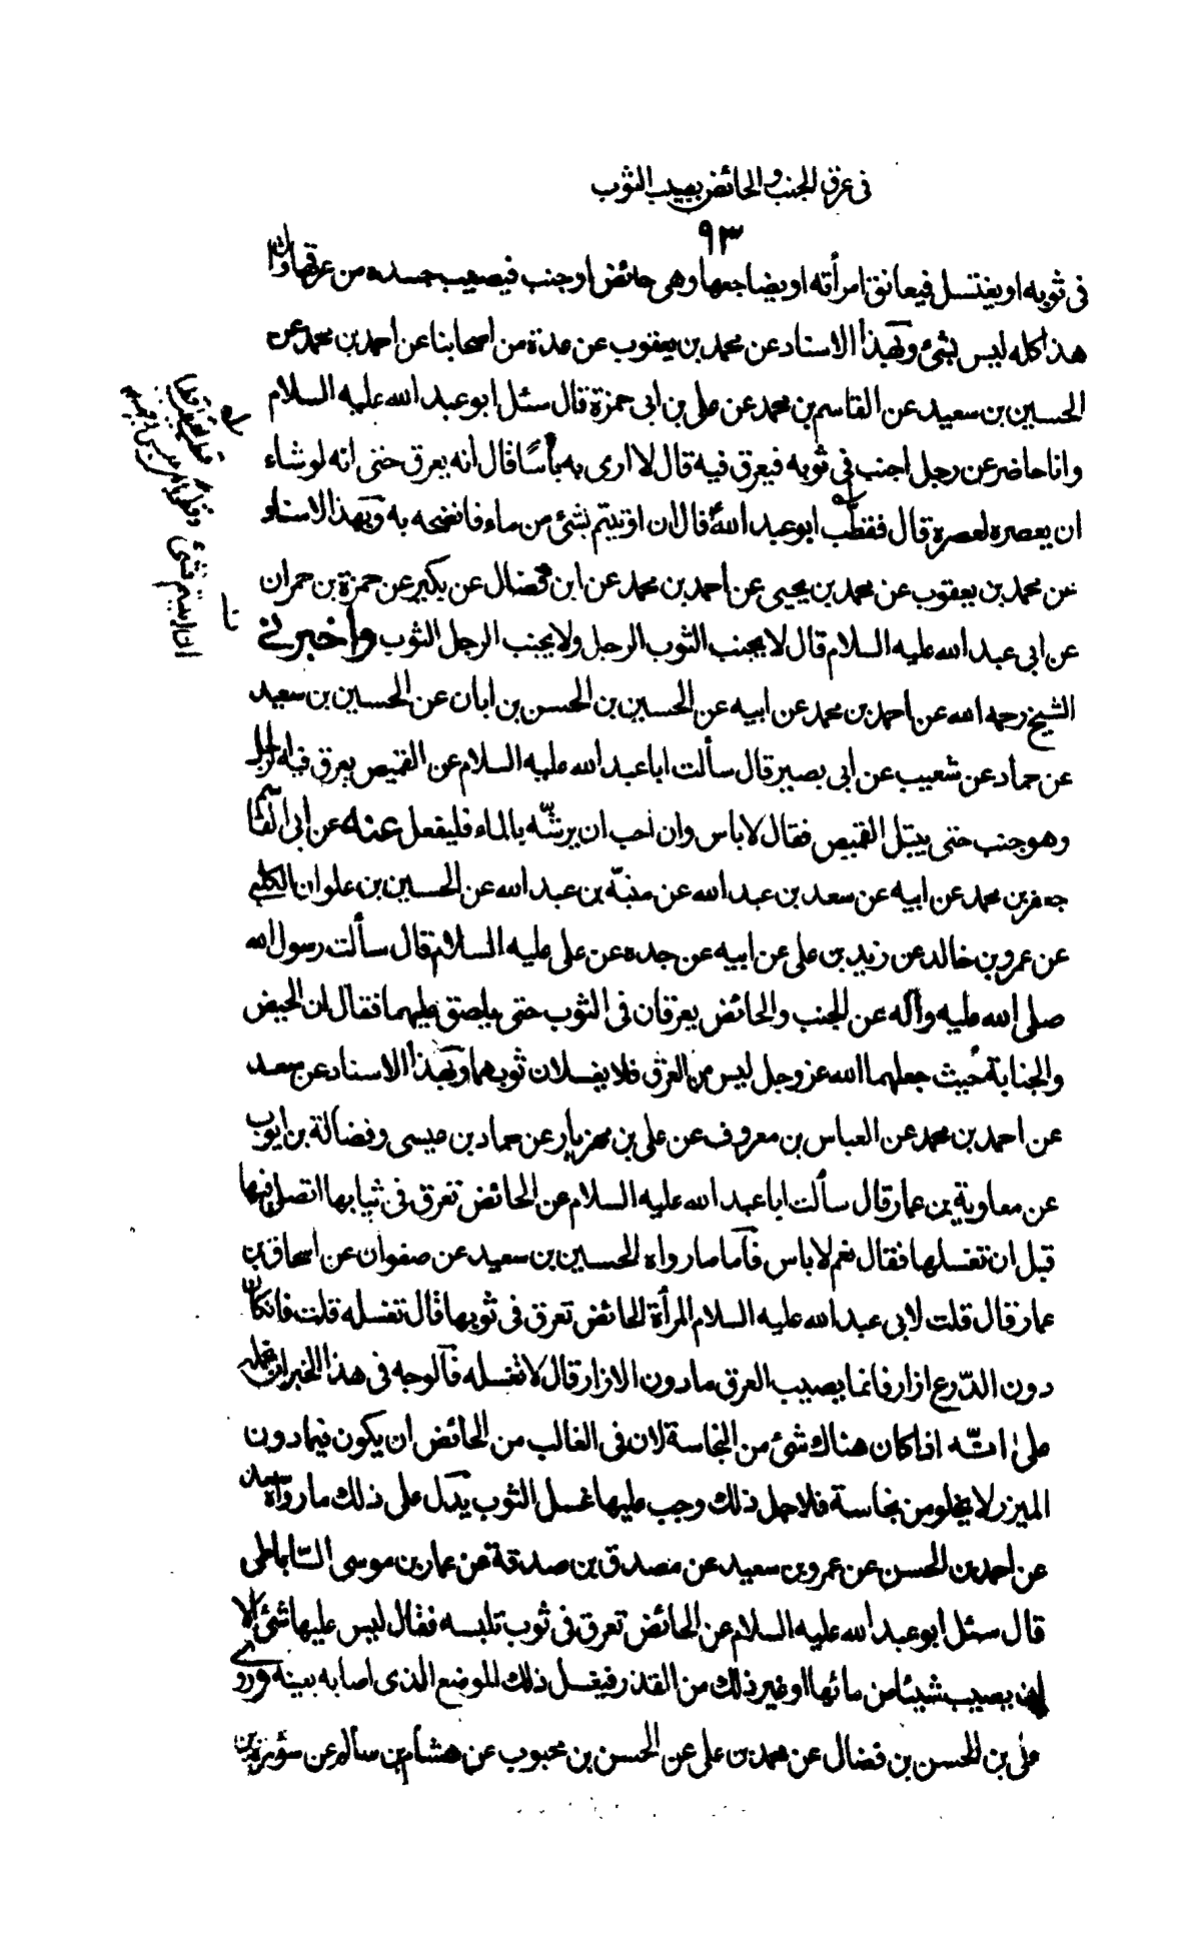 فى عرق الجنب والحائض يصيب الثوب
٩٣
فى ثوبه او يغتسل فيعانق امرأته او يضاجعها وهى حائض او جنب فيصيب جسده من عرقها قال
هذا كله ليس بشئ وبهذا الاسناد عن محمد بن يعقوب عن عدة من اصحابنا عن احمد بن محمد عن
الحسين بن سعيد عن القاسم بن محمد عن على بن ابى حمزة قال سئل ابو عبد الله عليه السلام
وانا حاضر عن رجل اجنب فى ثوبه فيعرق فيه قال لا ارى به بأسا قال انه يعرق حتى انه لو شاء
ان يعصره لعصره قال فقطب ابو عبد الله قال ان اوتيتم بشئ من ماء فانضحه به وبهذا الاسناد
عن محمد بن يعقوب عن محمد بن يحيى عن احمد بن محمد عن ابن فضال عن بكير عن حمزة بن حمران
عن ابى عبد الله عليه السلام قال لا يجنب الثوب الرجل ولا يجنب الرجل الثوب واخبرنى
الشيخ رحمه الله عن احمد بن محمد عن ابيه عن الحسين بن الحسن بن ابان عن الحسين بن سعيد
عن حماد عن شعيب عن ابى بصير قال سألت ابا عبد الله عليه السلام عن القميص يعرق فيه الرجل
وهو جنب حتى يبتل القميص فقال لا باس وان احب ان يرشّه بالماء فليفعل عنه عن ابى القاسم
جعفر بن محمد عن ابيه عن سعد بن عبد الله عن منبّه بن عبد الله عن الحسين بن علوان الكلبى
عن عمرو بن خالد عن زيد بن على عن ابيه عن جده عن على عليه السلام قال سألت رسول الله
صلى الله عليه وآله عن الجنب والحائض يعرقان فى الثوب حتى يلصق عليهما فقال ان الحيض
والجنابة حيث جعلهما الله عز وجل ليس من العرق فلا يغسلان ثوبهما وبهذا الاسناد عن سعد
عن احمد بن محمد عن العباس بن معروف عن على بن مهزيار عن حماد بن عيسى وفضالة بن ايوب
عن معاوية بن عمار قال سألت ابا عبد الله عليه السلام عن الحائض تعرق فى ثيابها اتصلى فيها
قبل ان تغسلها فقال نعم لا باس فاما ما رواه الحسين بن سعيد عن صفوان عن اسحاق بن
عمار قال قلت لابى عبد الله عليه السلام المرأة الحائض تعرق فى ثوبها قال تغسله قلت فان كان
دون الدّرع ازار فانما يصيب العرق ما دون الازار قال لا تغسله فالوجه فى هذا الخبر ان نحمله
على انّه اذا كان هناك شئ من النجاسة لان فى الغالب من الحائض ان يكون فيما دون
الميزر لا يخلو من نجاسة فلاجل ذلك وجب عليها غسل الثوب يدل على ذلك ما رواه سعد
عن احمد بن الحسن عن عمرو بن سعيد عن مصدق بن صدقة عن عمار بن موسى السّاباطى
قال سئل ابو عبد الله عليه السلام عن الحائض تعرق فى ثوب تلبسه فقال ليس عليها شئ الا
ان يصيب شيئا من مائها او غير ذلك من القذر فيغسل ذلك الموضع الذى اصابه بعينه وروى
على بن الحسن بن فضال عن محمد بن على عن الحسن بن محبوب عن هشام بن سالم عن سؤرة بن